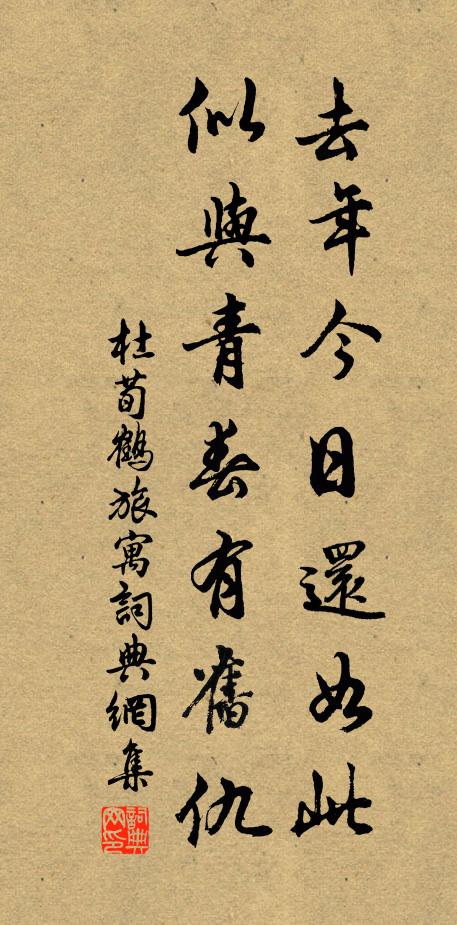 去年今日還如此
似與青春有舊仇
杜荀鶴旅寓詞典網集
詞典網印